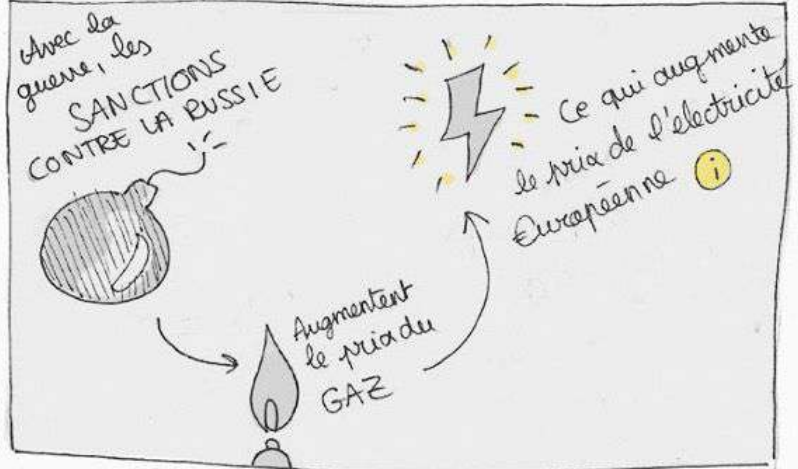 Avec la
guerre, les
SANCTIONS
CONTRE LA RUSSIE
Augmentent
le prix du
GAZ
Ce qui augmente
le prix de l'électricité
Européenne i